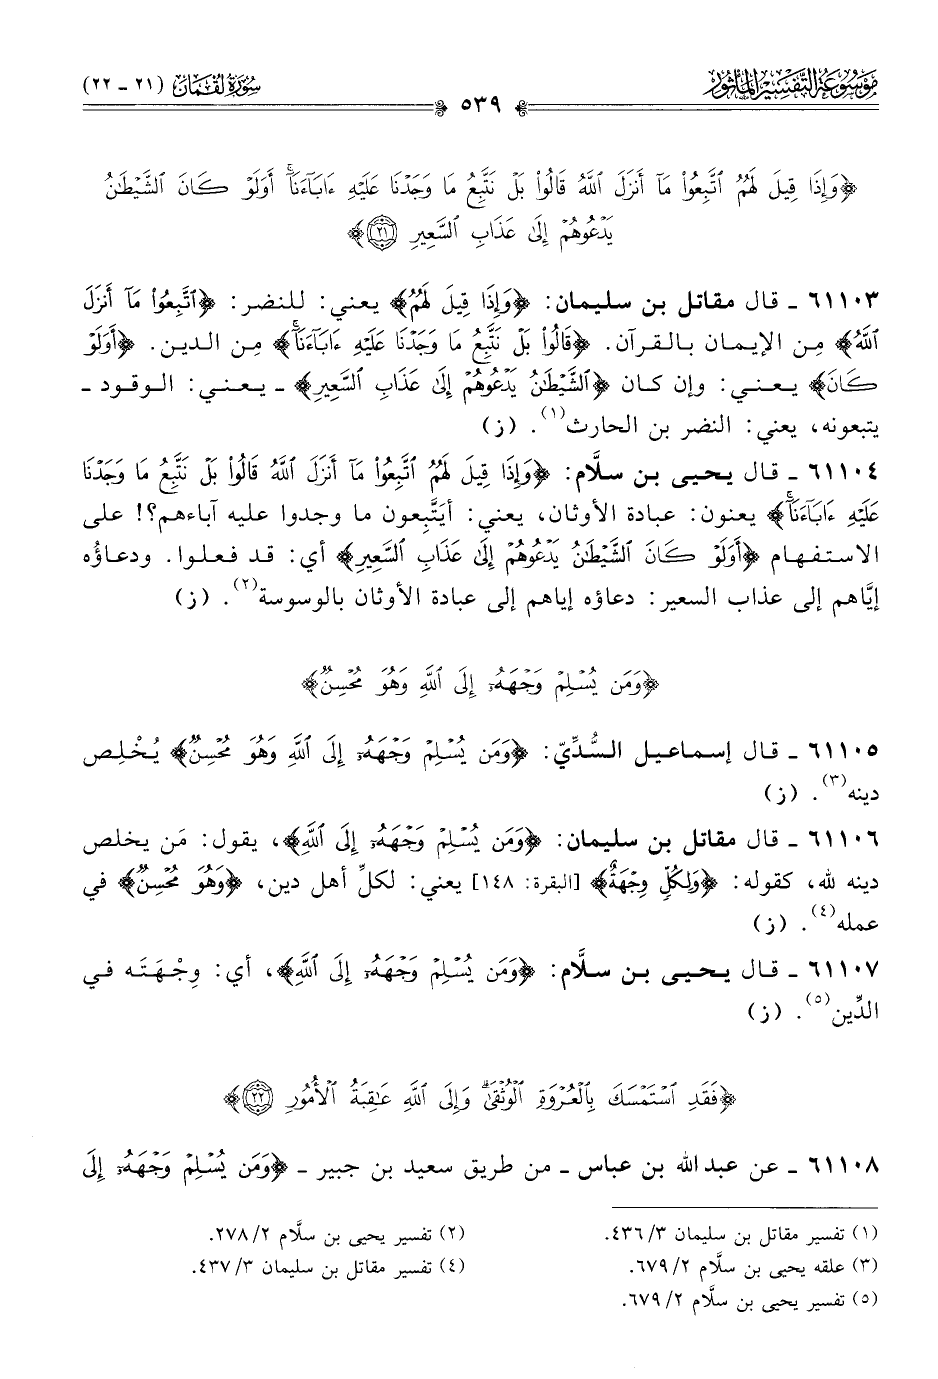 مَوْسُوعَة التَّفْسِير المَأْثُور
سُورَة لُقْمَان (٢١ - ٢٢)
٥٣٩
﴿وَإِذَا قِيلَ لَهُمُ ٱتَّبِعُواْ مَآ أَنزَلَ ٱللَّهُ قَالُواْ بَلۡ نَتَّبِعُ مَا وَجَدۡنَا عَلَيۡهِ ءَابَآءَنَآۚ أَوَلَوۡ كَانَ ٱلشَّيۡطَٰنُ
يَدۡعُوهُمۡ إِلَىٰ عَذَابِ ٱلسَّعِيرِ ۝٢١﴾
٦١١٠٣ - قال مقاتل بن سليمان: ﴿وَإِذَا قِيلَ لَهُمُ﴾ يعني: للنضر: ﴿ٱتَّبِعُواْ مَآ أَنزَلَ
ٱللَّهُ﴾ مِن الإيمان بالقرآن. ﴿قَالُواْ بَلۡ نَتَّبِعُ مَا وَجَدۡنَا عَلَيۡهِ ءَابَآءَنَآۚ﴾ مِن الدين. ﴿أَوَلَوۡ
كَانَ﴾ يعني: وإن كان ﴿ٱلشَّيۡطَٰنُ يَدۡعُوهُمۡ إِلَىٰ عَذَابِ ٱلسَّعِيرِ﴾ - يعني: الوقود -
يتبعونه، يعني: النضر بن الحارث(١). (ز)
٦١١٠٤ - قال يحيى بن سلَّام: ﴿وَإِذَا قِيلَ لَهُمُ ٱتَّبِعُواْ مَآ أَنزَلَ ٱللَّهُ قَالُواْ بَلۡ نَتَّبِعُ مَا وَجَدۡنَا
عَلَيۡهِ ءَابَآءَنَآۚ﴾ يعنون: عبادة الأوثان، يعني: أيَتَّبِعون ما وجدوا عليه آباءهم؟! على
الاستفهام ﴿أَوَلَوۡ كَانَ ٱلشَّيۡطَٰنُ يَدۡعُوهُمۡ إِلَىٰ عَذَابِ ٱلسَّعِيرِ﴾ أي: قد فعلوا. ودعاؤُه
إيَّاهم إلى عذاب السعير: دعاؤه إياهم إلى عبادة الأوثان بالوسوسة(٢). (ز)
﴿وَمَن يُسۡلِمۡ وَجۡهَهُۥٓ إِلَى ٱللَّهِ وَهُوَ مُحۡسِنٞ﴾
٦١١٠٥ - قال إسماعيل السُّدِّيّ: ﴿وَمَن يُسۡلِمۡ وَجۡهَهُۥٓ إِلَى ٱللَّهِ وَهُوَ مُحۡسِنٞ﴾ يُخْلِص
دينه(٣). (ز)
٦١١٠٦ - قال مقاتل بن سليمان: ﴿وَمَن يُسۡلِمۡ وَجۡهَهُۥٓ إِلَى ٱللَّهِ﴾، يقول: مَن يخلص
دينه لله، كقوله: ﴿وَلِكُلّٖ وِجۡهَةٌ﴾ [البقرة: ١٤٨] يعني: لكلِّ أهل دين، ﴿وَهُوَ مُحۡسِنٞ﴾ في
عمله(٤). (ز)
٦١١٠٧ - قال يحيى بن سلَّام: ﴿وَمَن يُسۡلِمۡ وَجۡهَهُۥٓ إِلَى ٱللَّهِ﴾، أي: وِجْهَتَه في
الدِّين(٥). (ز)
﴿فَقَدِ ٱسۡتَمۡسَكَ بِٱلۡعُرۡوَةِ ٱلۡوُثۡقَىٰۗ وَإِلَى ٱللَّهِ عَٰقِبَةُ ٱلۡأُمُورِ ۝٢٢﴾
٦١١٠٨ - عن عبد الله بن عباس - من طريق سعيد بن جبير - ﴿وَمَن يُسۡلِمۡ وَجۡهَهُۥٓ إِلَى
(١) تفسير مقاتل بن سليمان ٣/ ٤٣٦.
(٢) تفسير يحيى بن سلَّام ٢/ ٢٧٨.
(٣) علقه يحيى بن سلَّام ٢/ ٦٧٩.
(٤) تفسير مقاتل بن سليمان ٣/ ٤٣٧.
(٥) تفسير يحيى بن سلَّام ٢/ ٦٧٩.